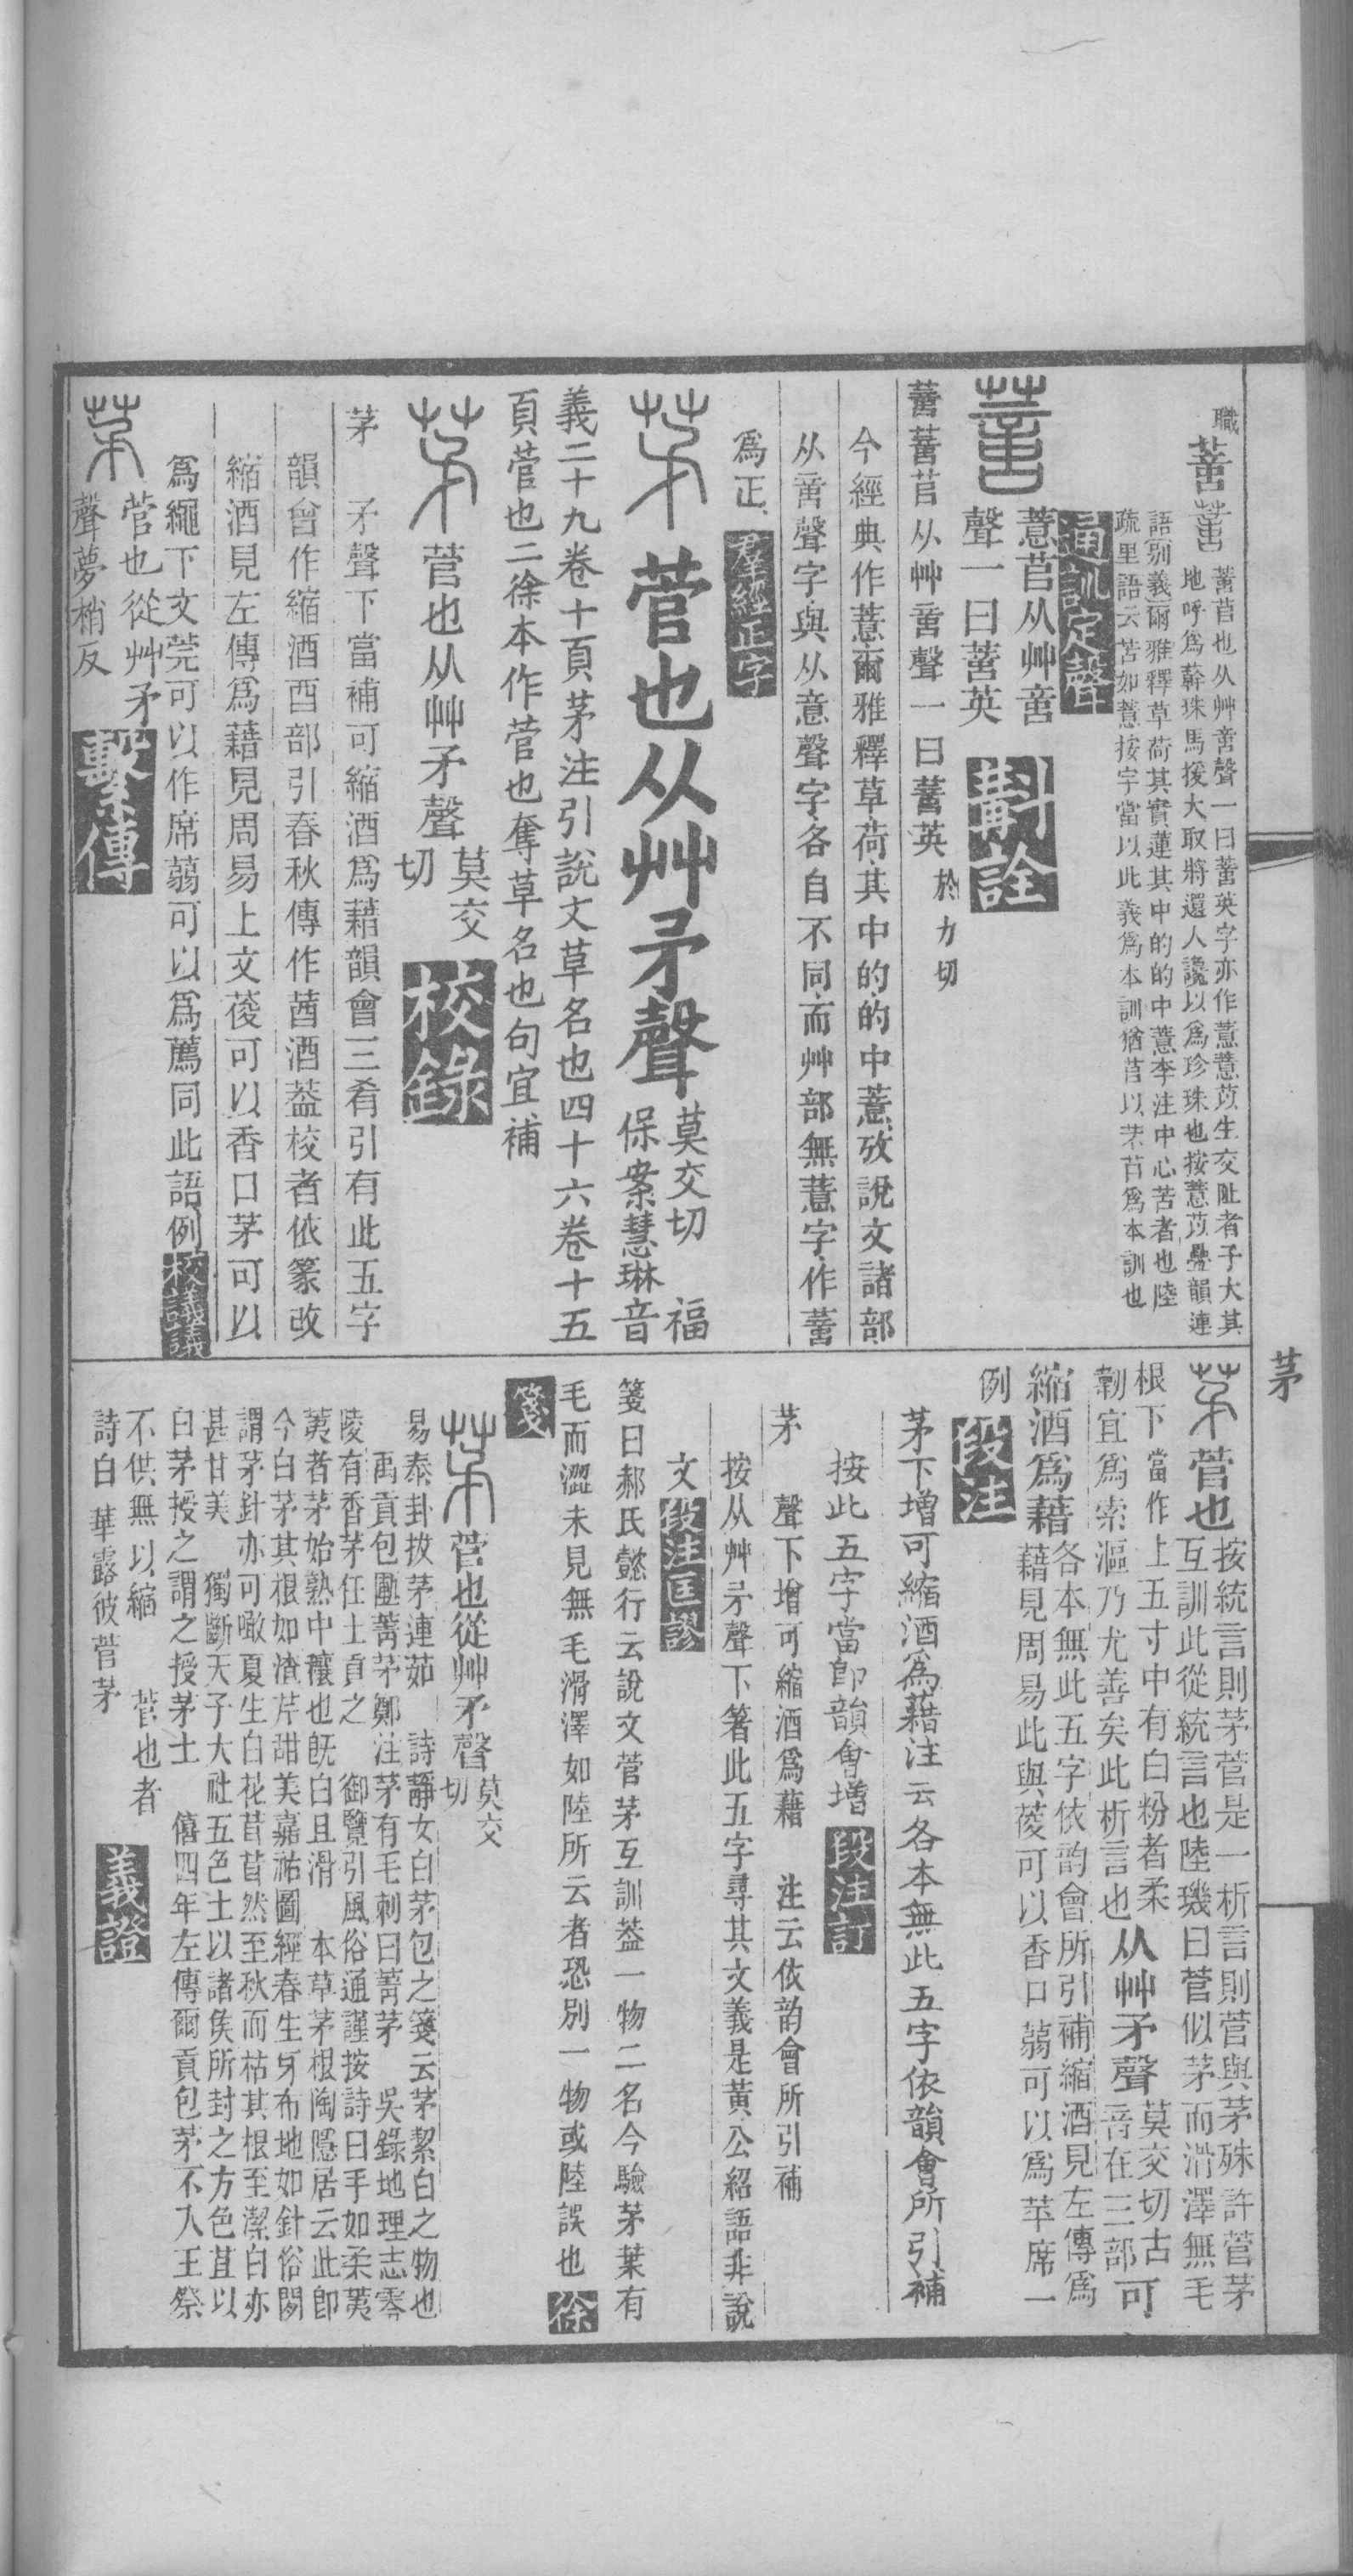 職 䔰 䔰 䔰苢也从艸啻聲一曰䔰英字亦作薏薏苡生交阯者子大其
地呼爲䕞珠馬援大取將還人讒以爲珍珠也按薏苡疊韻連
語別義爾雅釋草荷其實蓮其中的的中薏李注中心苦者也陸
疏里語云苦如薏按字當以此義爲本訓猶苢以芣苢爲本訓也
通訓定聲
䔰 薏苢从艸啻
聲一曰䔰英 斠詮
䔰䔰苢从艸啻聲一曰䔰英 於力切
今經典作薏爾雅釋草荷其中的的中薏攷說文諸部
从啻聲字與从意聲字各自不同而艸部無薏字作䔰
爲正 羣經正字
茅 菅也从艸矛聲 莫交切 福
保案慧琳音
義二十九卷十頁茅注引說文草名也四十六卷十五
頁菅也二徐本作菅也奪草名也句宜補
茅 菅也从艸矛聲 莫交
切 校錄
茅 矛聲下當補可縮酒爲藉韻會三肴引有此五字
韻會作縮酒酉部引春秋傳作茜酒葢校者依篆改
縮酒見左傳爲藉見周易上文葰可以香口茅可以
爲繩下文莞可以作席蒻可以爲薦同此語例 校議議
茅 菅也從艸矛
聲夢梢反 繫傳
茅
茅 菅也 按統言則茅菅是一析言則菅與茅殊許菅茅
互訓此從統言也陸璣曰菅似茅而滑澤無毛
根下當作上五寸中有白粉者柔
韌宜爲索漚乃尤善矣此析言也 从艸矛聲 莫交切古
音在三部 可
縮酒爲藉 各本無此五字依韵會所引補縮酒見左傳爲
藉見周易此與葰可以香口蒻可以爲苹席一
例 段注
茅下增可縮酒爲藉注云各本無此五字依韻會所引補
按此五字當卽韻會增 段注訂
茅 聲下增可縮酒爲藉 注云依韵會所引補
按从艸矛聲下箸此五字尋其文義是黃公紹語非說
文 段注匡謬
箋曰郝氏懿行云說文菅茅互訓葢一物二名今驗茅葉有
毛而澀未見無毛滑澤如陸所云者恐別一物或陸誤也 徐
箋
茅 菅也從艸矛聲 莫交
切
易泰卦拔茅連茹 詩靜女白茅包之箋云茅絜白之物也
禹貢包匭菁茅鄭注茅有毛刺曰菁茅 吳錄地理志零
陵有香茅任土貢之 御覽引風俗通謹按詩曰手如柔荑
荑者茅始熟中穰也旣白且滑 本草茅根陶隱居云此卽
今白茅其根如渣芹甜美嘉祐圖經春生牙布地如針俗閒
謂茅針亦可噉夏生白花茸茸然至秋而枯其根至潔白亦
甚甘美 獨斷天子大社五色土以諸侯所封之方色苴以
白茅授之謂之授茅土 僖四年左傳爾貢包茅不入王祭
不供無以縮 菅也者
詩白華露彼菅茅 義證